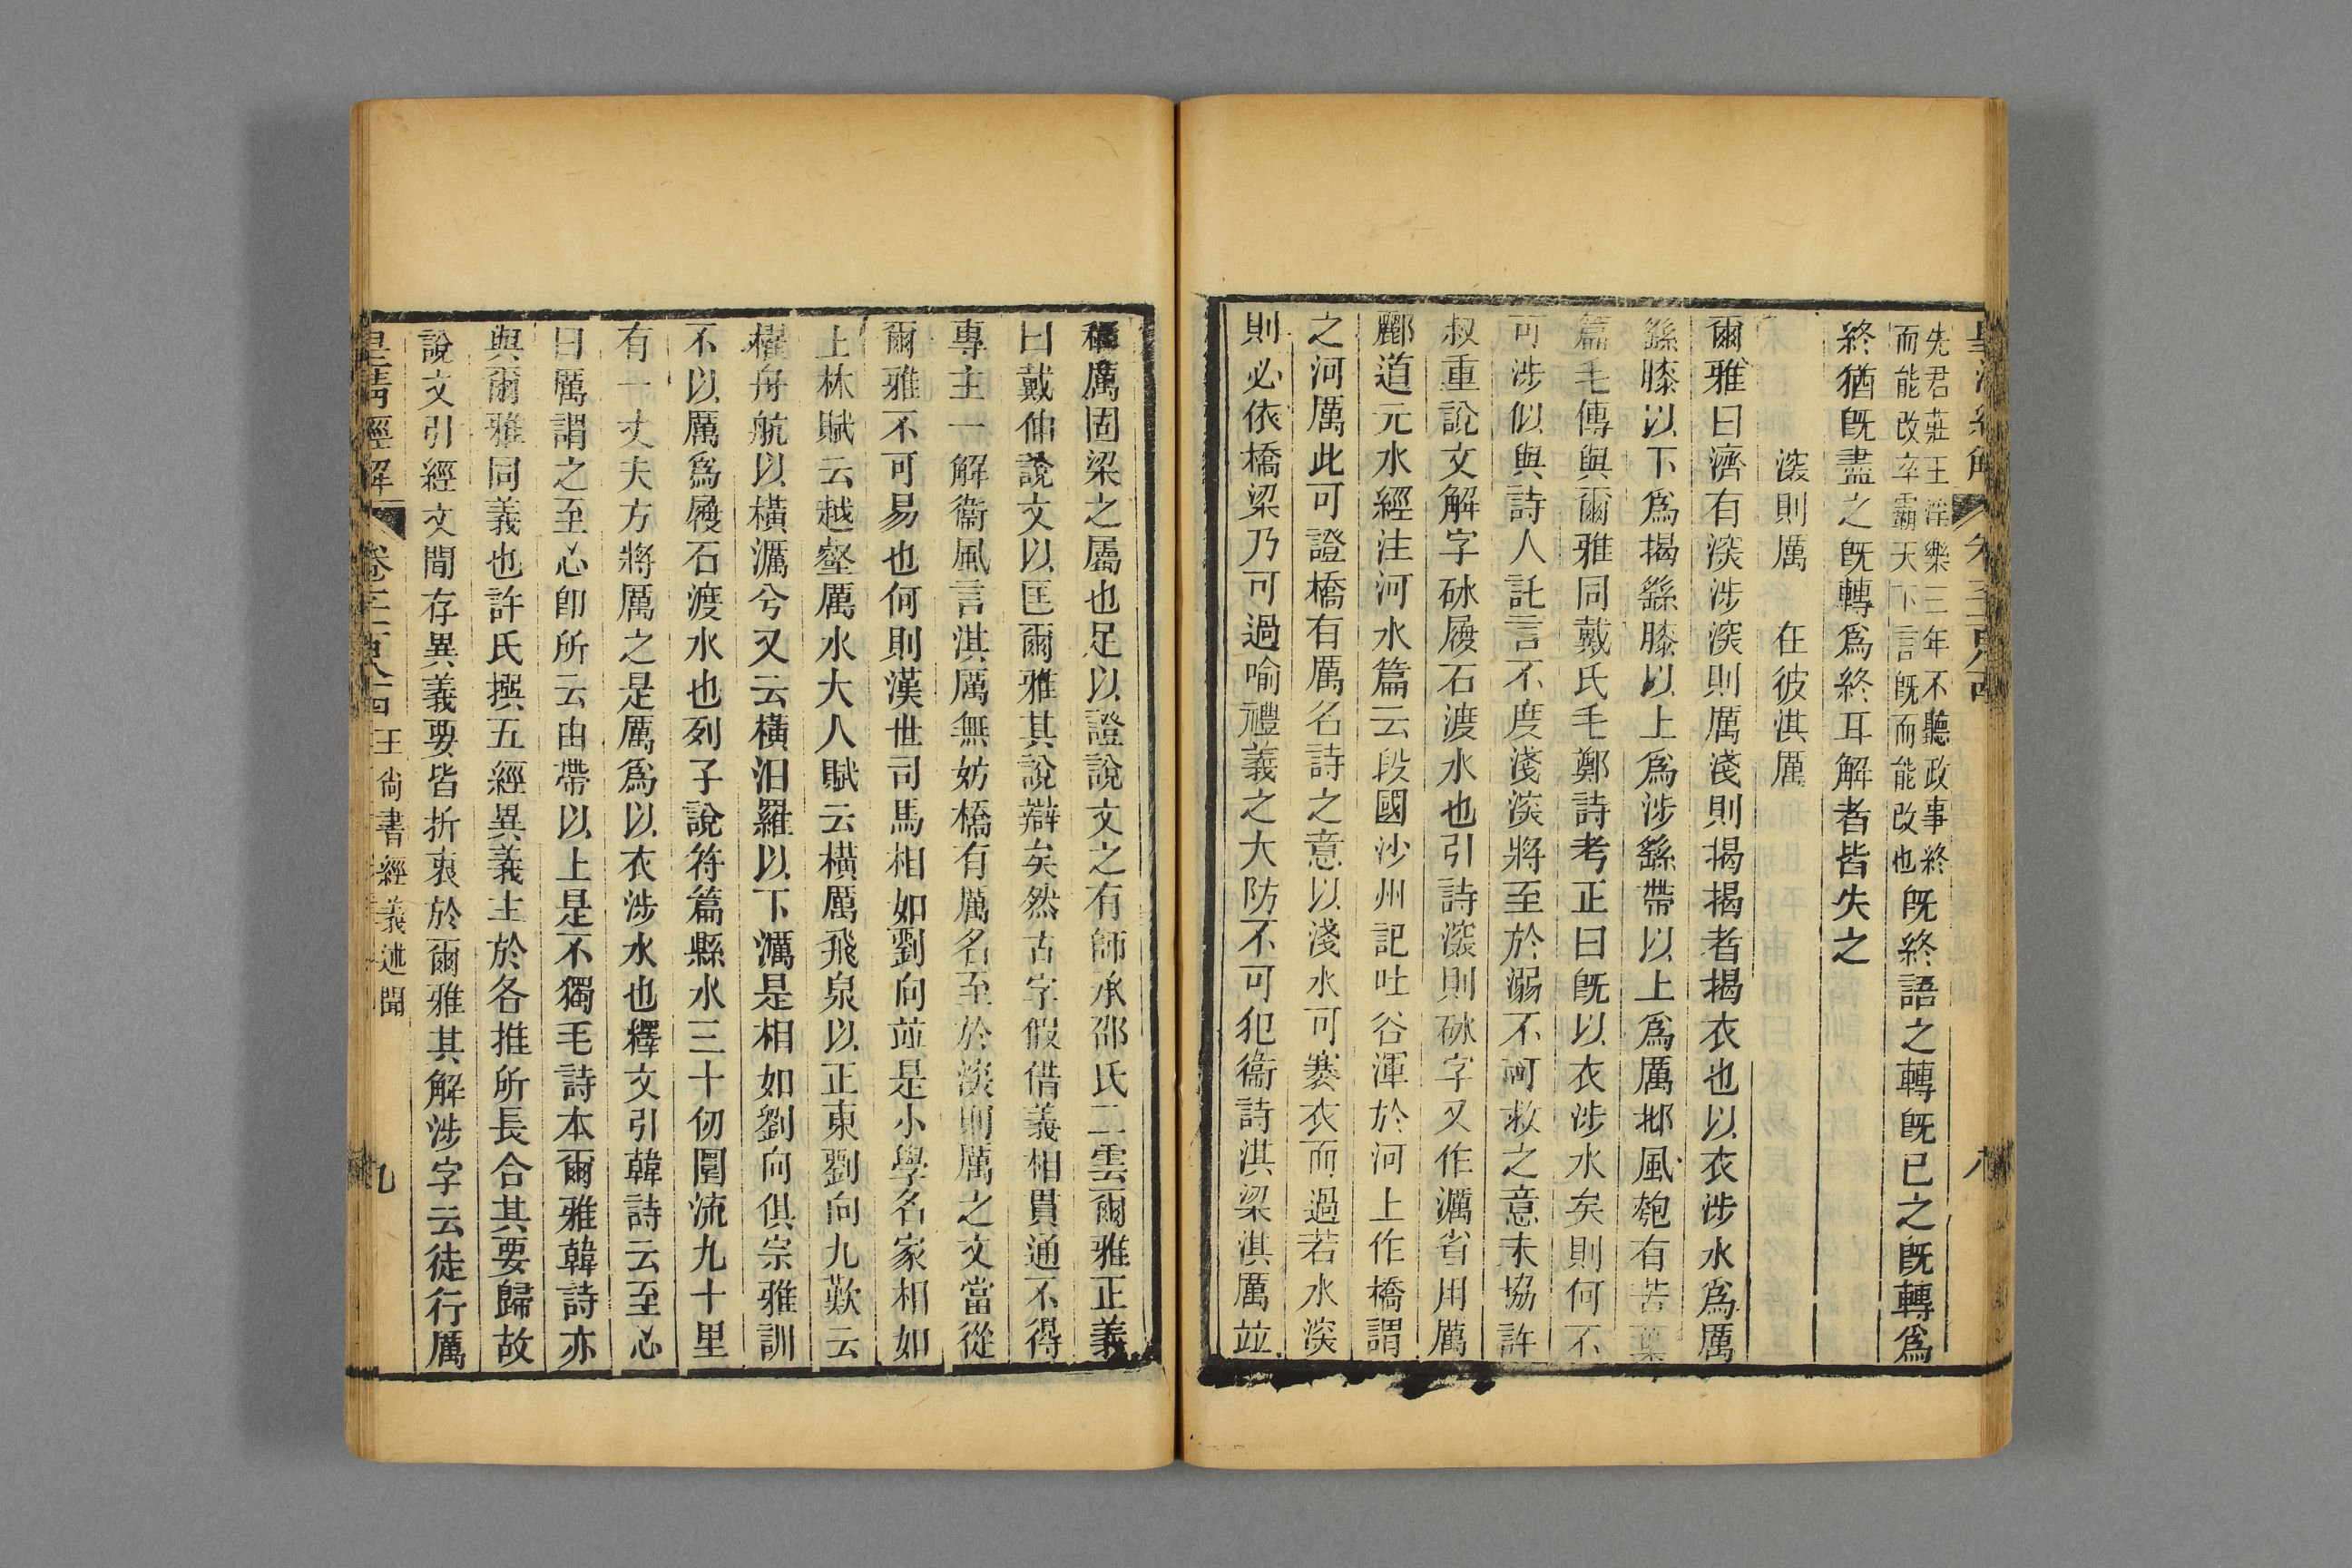 皇清經解
八
先君莊王淫樂三年不聽政事終
而能改卒霸天下言旣而能改也
旣終語之轉旣已之旣轉爲
終猶旣盡之旣轉爲終耳解者皆失之
深則厲 在彼淇厲
爾雅曰濟有深涉深則厲淺則揭揭者揭衣也以衣涉水爲厲
繇膝以下爲揭繇膝以上爲涉繇帶以上爲厲邶風匏有苦葉
篇毛傳與爾雅同戴氏毛鄭詩考正曰旣以衣涉水矣則何不
可涉似與詩人託言不度淺深將至於溺不可救之意未協許
叔重說文解字砅履石渡水也引詩深則砅字又作濿省用厲
酈道元水經注河水篇云段國沙州記吐谷渾於河上作橋謂
之河厲此可證橋有厲名詩之意以淺水可褰衣而過若水深
則必依橋梁乃可過喻禮義之大防不可犯衞詩淇梁淇厲竝
稱厲固梁之屬也足以證說文之有師承邵氏二雲爾雅正義
曰戴仲說文以匡爾雅其說辯矣然古字假借義相貫通不得
專主一解衞風言淇厲無妨橋有厲名至於深則厲之文當從
爾雅不可易也何則漢世司馬相如劉向竝是小學名家相如
上林賦云越壑厲水大人賦云橫厲飛泉以正東劉向九歎云
櫂舟航以橫濿兮又云橫汨羅以下濿是相如劉向俱宗雅訓
不以厲爲履石渡水也列子說符篇縣水三十仞圜流九十里
有一丈夫方將厲之是厲爲以衣涉水也釋文引韓詩云至心
曰厲謂之至心卽所云由帶以上是不獨毛詩本爾雅韓詩亦
與爾雅同義也許氏撰五經異義主於各推所長合其要歸故
說文引經文閒存異義要皆折衷於爾雅其解涉字云徒行厲
皇清經解
卷千一百八十四
王尙書經義述聞
九